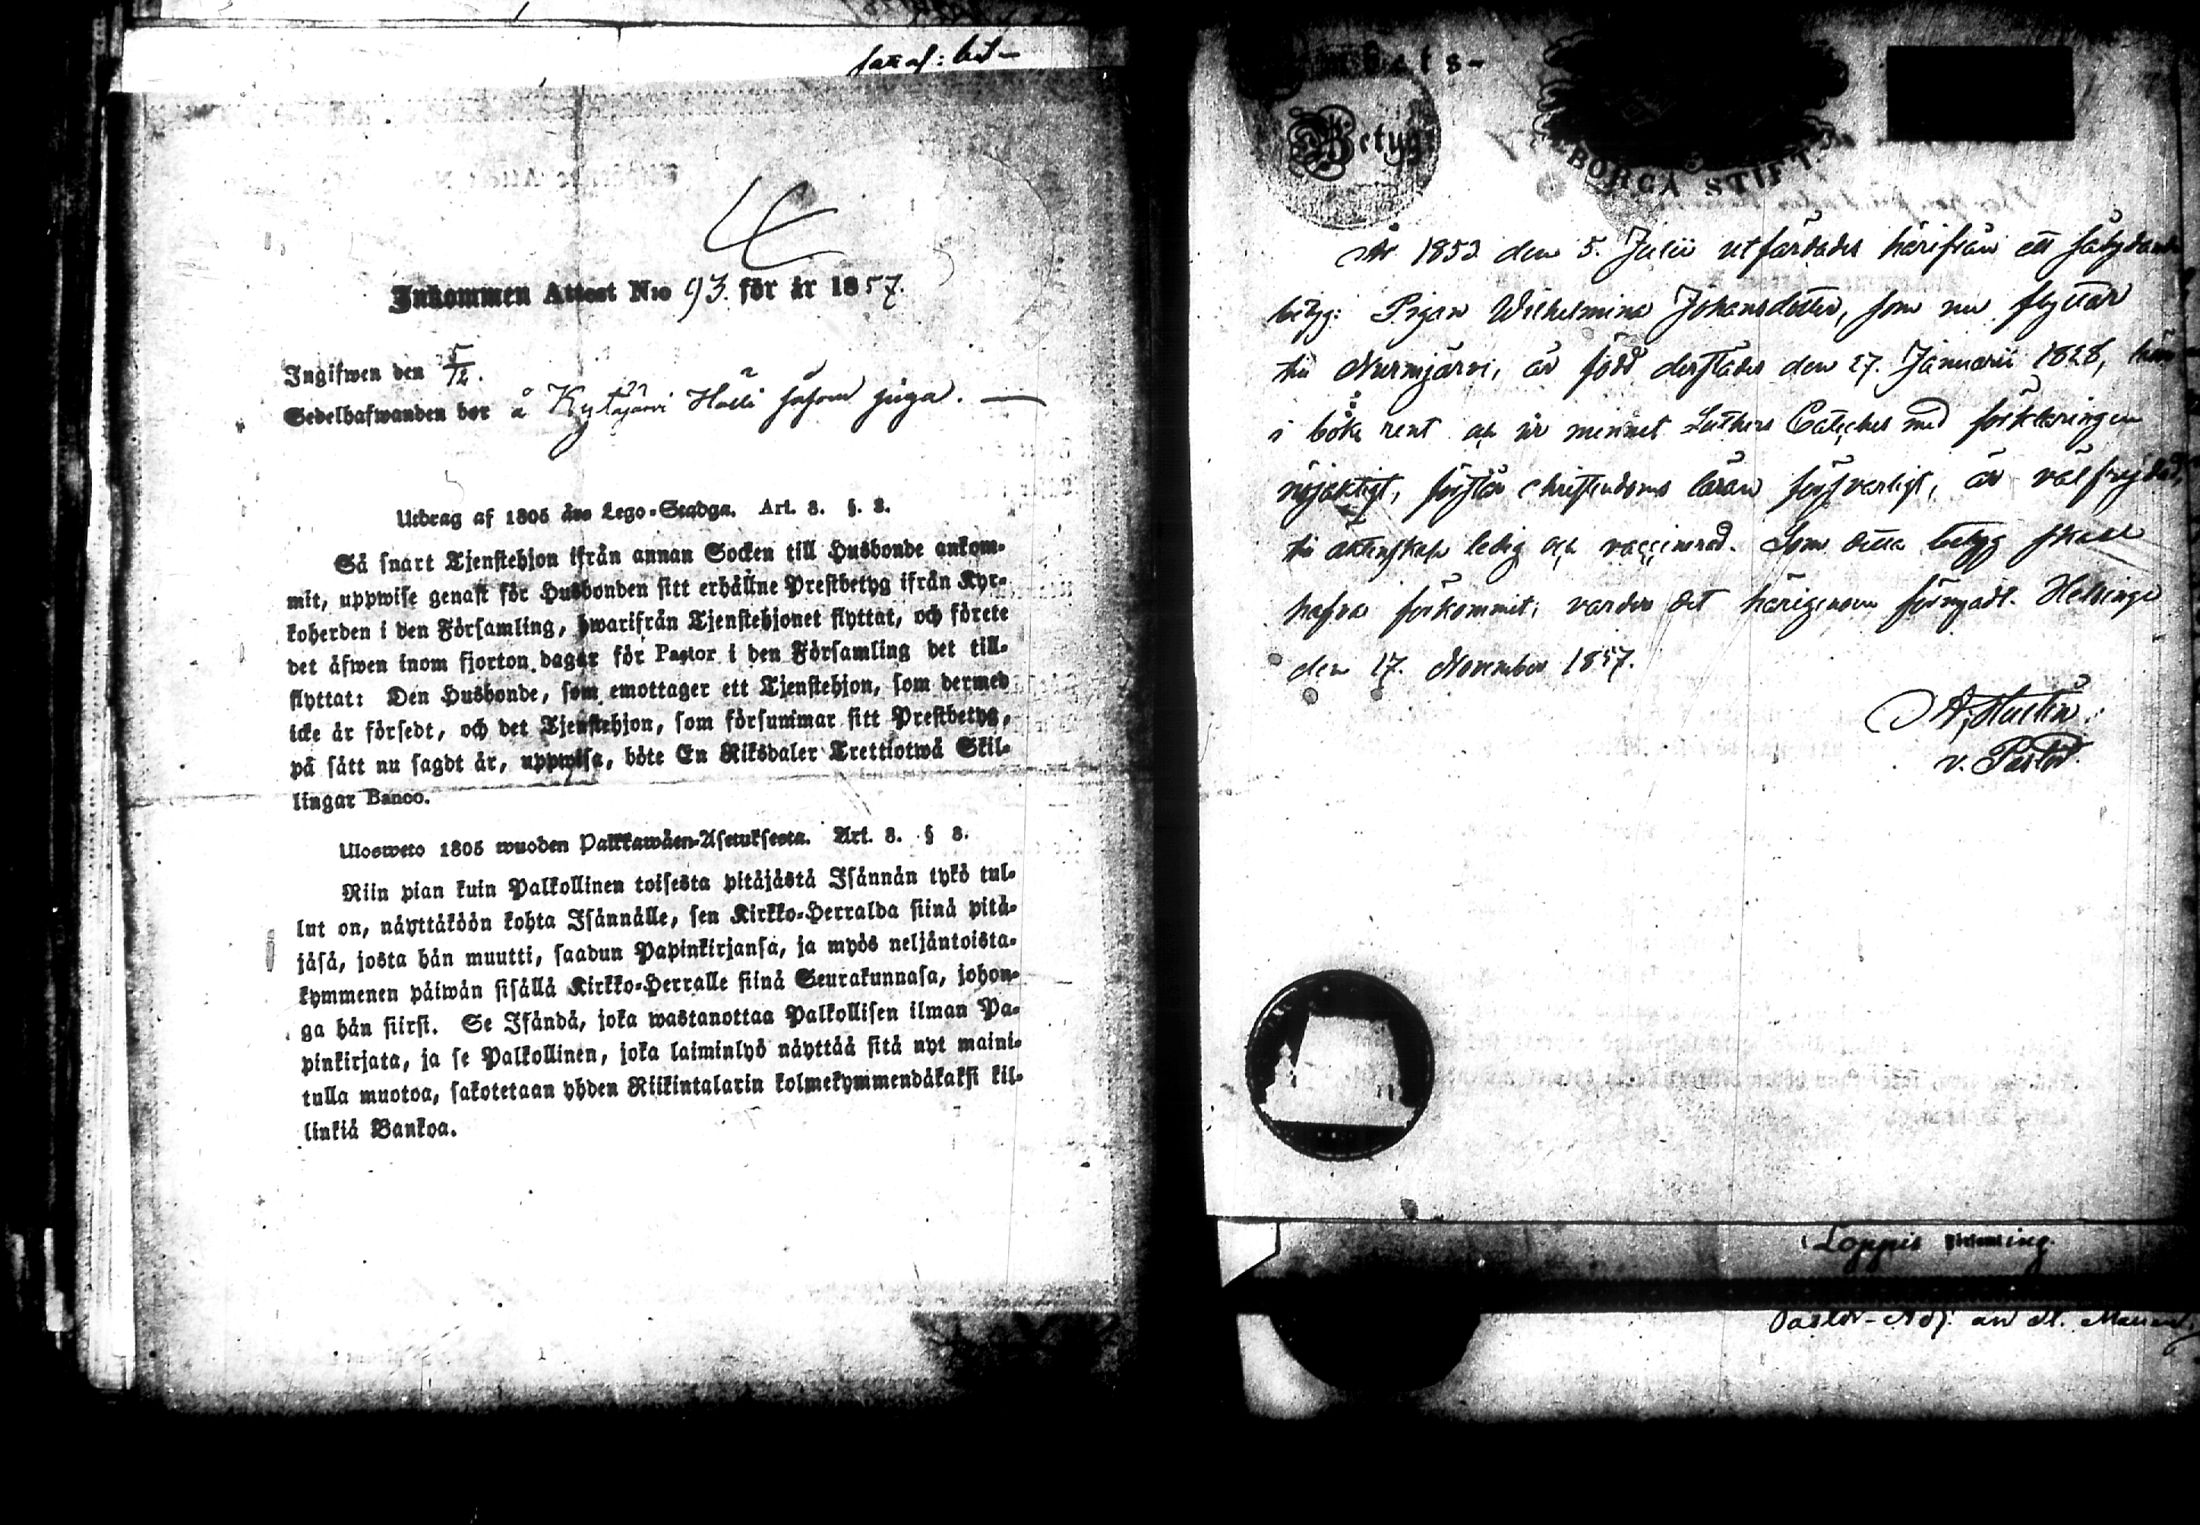 Inkommen Attest N:o 93. för år 1857.
Ingifwen den 5/12.
Sedelhafwanden bor å Kytäjärvi Hälli såsom piga.
Utdrag af 1805 års Lego-Stadga. Art. 8. §. 8.
Så snart Tjenstehjon ifrån annan Socken till Husbonde ankom-
mit, uppwise genast för Husbonden sitt erhållne Prestbetyg ifrån Kyr-
koherden i den Församling, hwarifrån Tjenstehjonet flyttat, och förete
det äfwen inom fjorton dagar för Pastor i den Församling det till-
flyttat: Den Husbonde, som emottager ett Tjenstehjon, som dermed
icke är försedt, och det Tjenstehjon, som försummar sitt Prestbetyg,
på sätt nu sagdt är, uppwisa, böte En Riksdaler Trettiotwå Skil-
lingar Banco.
Ulosweto 1805 wuoden Palkkawäen-Asetuksesta. Art. 8. § 8.
Niin pian kuin Palkollinen toisesta pitäjästä Isännän tykö tul-
lut on, näyttäköön kohta Isännälle, sen Kirkko-Herralda siinä pitä-
jäsä, josta hän muutti, saadun Papinkirjansa, ja myös neljäntoista-
kymmenen päiwän sisällä Kirkko-Herralle siinä Seurakunnasa, johon-
ga hän siirsi. Se Isändä, joka wastanottaa Palkollisen ilman Pa-
pinkirjata, ja se Palkollinen, joka laiminlyö näyttää sitä nyt maini-
tulla muotoa, sakotetaan yhden Riikintalarin kolmekymmendäkaksi kil-
linkiä Bankoa.
Betyg
BORGÅ STIFT.
År 1853 den 5. Julii utfärdades härifrån ett sålydande
betyg: Pigan Wilhelmina Johansdotter, som nu flyttar
till Nurmijärvi, är född derstädes den 27. Januarii 1828, kan
i bok rent och ur minnet Luthers Cateches med förklaringen
nöjaktigt, förstår christendoms läran försvarligt, är välfrejdad,
till äktenskap ledig och vaccinerad. Som detta betyg skall
hafva förkommit, varder det härigenom förnyadt. Helsinge
den 17. November 1857.
v. Pastor.
Loppis Församling
Pastor-Adj.